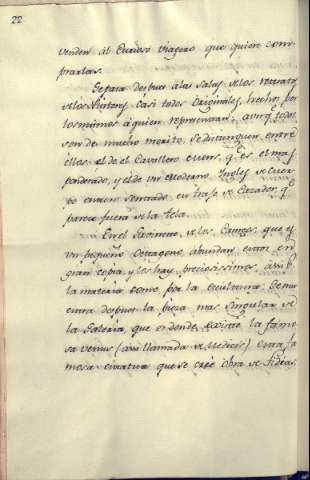 22
venden al curioso viagero que quiere com-
prarlas.
Se pasa despues a las salas de los retratos
de los Pintores casi todos originales, hechos por
los mismos a quien representan; aunq.e todos
son de mucho merito, se distinguen entre
ellos el de el Cavallero q.e es el mas
ponderado, y el de un moderno Ingles de cuer-
po entero sentado en trage de Cazador, q.e
parece fuera de la tela.
En el Gavinete de los Cameos, que es
un pequeño Octagono, abundan estos en
gran copia, y les hay preciosisimos, asi p.r
la materia como por la escultura: Se mu-
estra despues la pieza mas singular de
la Galeria, que es donde existe la famo-
sa venus (asi llamada de Medicis) esta fa-
mosa estatua que se cree obra de Fidias,